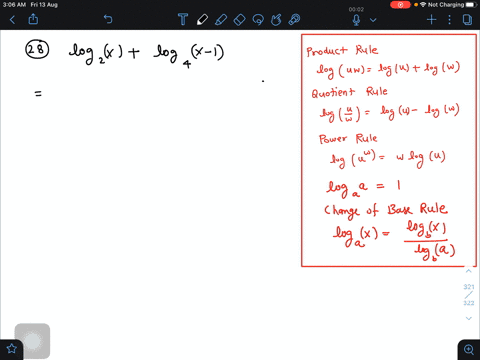 3:06 AM Fri 13 Aug
00:02
Not Charging
28 log₂(x) + log₄(x-1)
=
Product Rule
log(uw) = log(u) + log(w)
Quotient Rule
log(u/w) = log(u) - log(w)
Power Rule
log(u^w) = w log(u)
logₐa = 1
Change of Base Rule
logₐ(x) = log_b(x) / log_b(a)
321
/
322